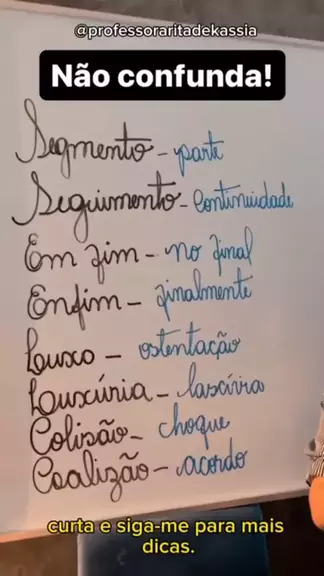 @professoraritadekassia
Não confunda!
Segmento - parte
Seguimento - Continuidade
Em fim - no final
Enfim - finalmente
Luxo - ostentação
Luxúria - lascívia
Colisão - choque
Coalizão - acordo
curta e siga-me para mais
dicas.